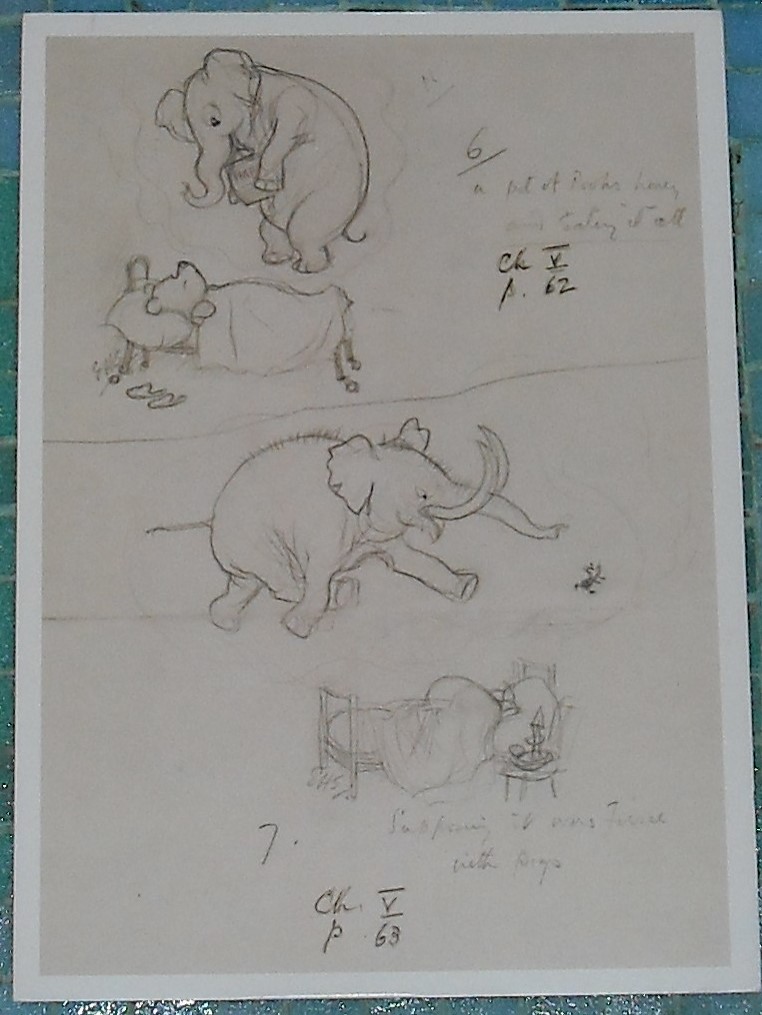 6/
a pot of Poohs honey
and eating it all
Ch V
p. 62
7.
Supposing it was Fierce
with Pigs
Ch. V
p. 63